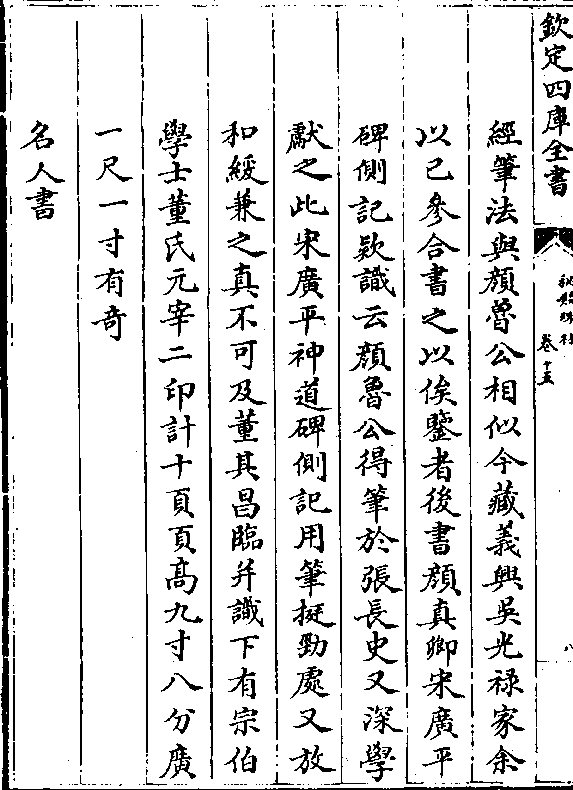 欽定四庫全書
秘殿珠林
卷十五
八
經筆法與顔魯公相似今藏義興吳光禄家余
以已參合書之以俟鑒者後書顔真卿宋廣平
碑側記欵識云顔魯公得筆於張長史又深學
獻之此宋廣平神道碑側記用筆挺勁處又放
和緩兼之真不可及董其昌臨并識下有宗伯
學士董氏元宰二印計十頁頁高九寸八分廣
一尺一寸有奇
名人書